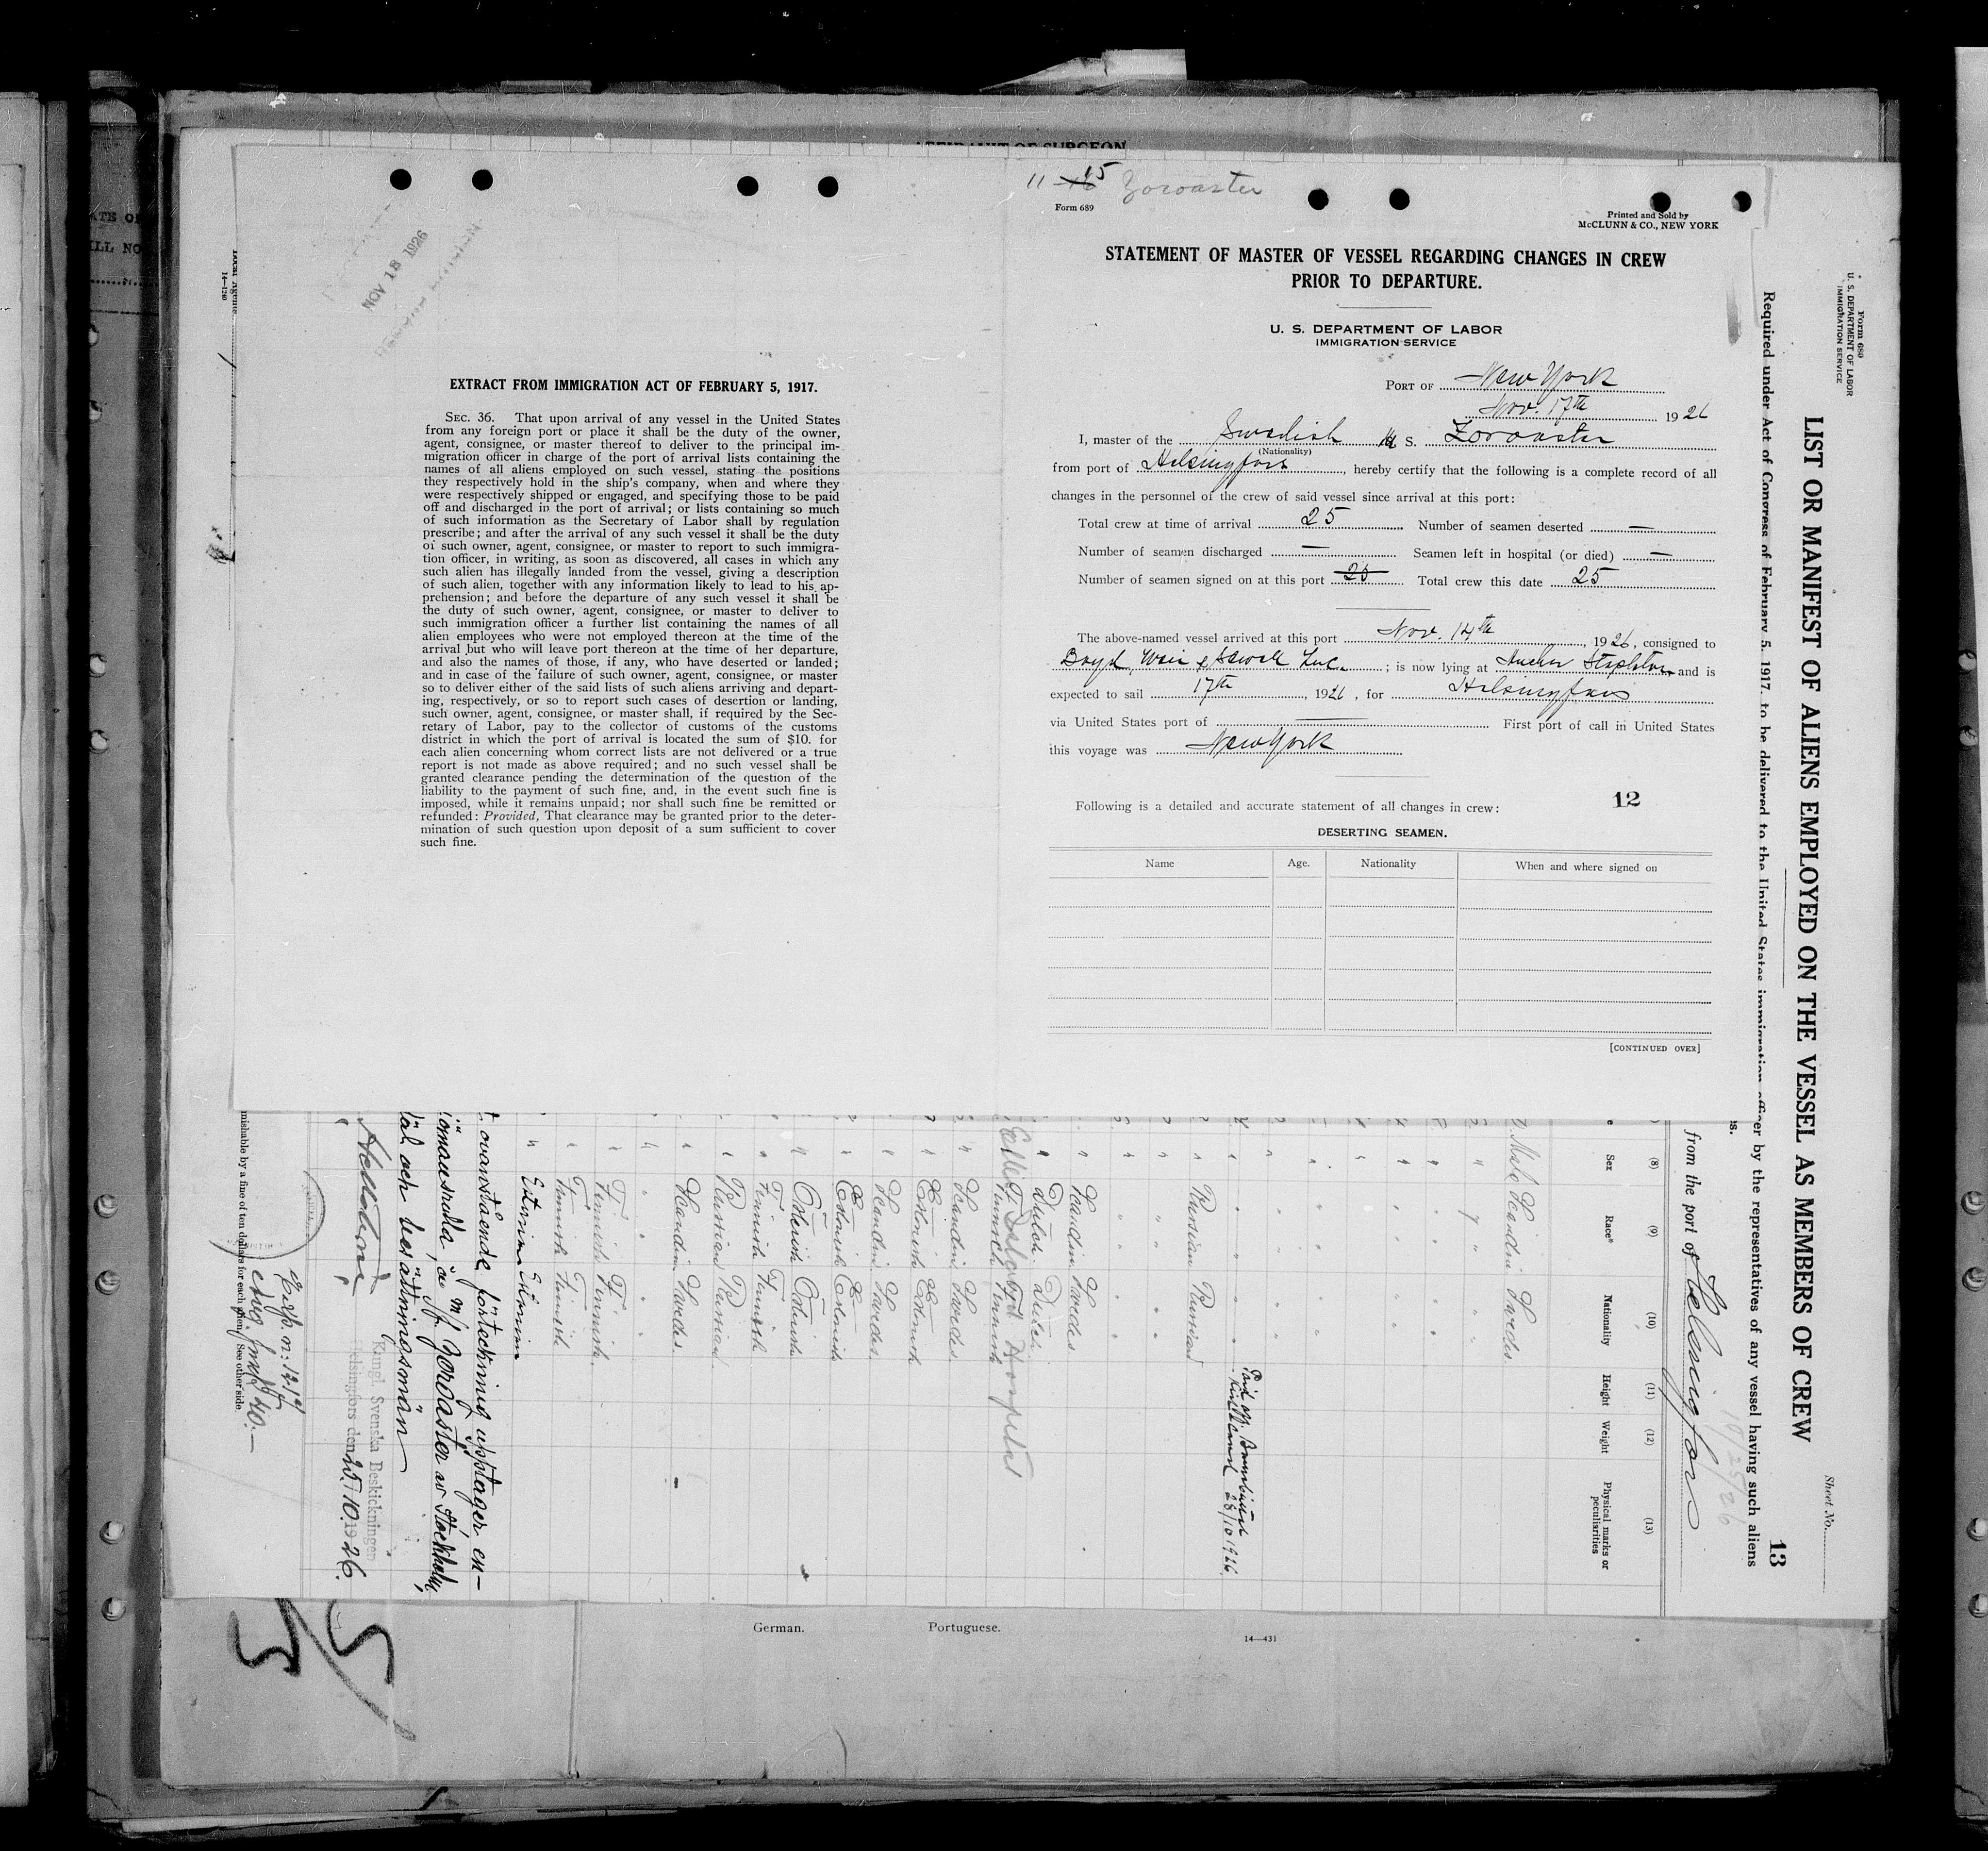 11-15 Zoroaster
Form 689
Printed and Sold by
McCLUNN & CO., NEW YORK
STATEMENT OF MASTER OF VESSEL REGARDING CHANGES IN CREW
PRIOR TO DEPARTURE.
U. S. DEPARTMENT OF LABOR
IMMIGRATION SERVICE
PORT OF New York
Nov. 17th 1926
I, master of the Swedish M S. Zoroaster
(Nationality)
from port of Helsingfors, hereby certify that the following is a complete record of all
changes in the personnel of the crew of said vessel since arrival at this port:
Total crew at time of arrival 25 Number of seamen deserted —
Number of seamen discharged — Seamen left in hospital (or died) —
Number of seamen signed on at this port 25 Total crew this date 25
The above-named vessel arrived at this port Nov. 14th, 1926, consigned to
Boyd, Weir & Sewall Inc.; is now lying at Anchor Stapleton and is
expected to sail 17th, 1926, for Helsingfors
via United States port of — First port of call in United States
this voyage was New York
12
Following is a detailed and accurate statement of all changes in crew:
DESERTING SEAMEN.
Name Age. Nationality When and where signed on
[CONTINUED OVER]
NOV 18 1926
EXTRACT FROM IMMIGRATION ACT OF FEBRUARY 5, 1917.
SEC. 36. That upon arrival of any vessel in the United States
from any foreign port or place it shall be the duty of the owner,
agent, consignee, or master thereof to deliver to the principal im-
migration officer in charge of the port of arrival lists containing the
names of all aliens employed on such vessel, stating the positions
they respectively hold in the ship's company, when and where they
were respectively shipped or engaged, and specifying those to be paid
off and discharged in the port of arrival; or lists containing so much
of such information as the Secretary of Labor shall by regulation
prescribe; and after the arrival of any such vessel it shall be the duty
of such owner, agent, consignee, or master to report to such immigra-
tion officer, in writing, as soon as discovered, all cases in which any
such alien has illegally landed from the vessel, giving a description
of such alien, together with any information likely to lead to his ap-
prehension; and before the departure of any such vessel it shall be
the duty of such owner, agent, consignee, or master to deliver to
such immigration officer a further list containing the names of all
alien employees who were not employed thereon at the time of the
arrival but who will leave port thereon at the time of her departure,
and also the names of those, if any, who have deserted or landed;
and in case of the failure of such owner, agent, consignee, or master
so to deliver either of the said lists of such aliens arriving and depart-
ing, respectively, or so to report such cases of desertion or landing,
such owner, agent, consignee, or master shall, if required by the Sec-
retary of Labor, pay to the collector of customs of the customs
district in which the port of arrival is located the sum of $10. for
each alien concerning whom correct lists are not delivered or a true
report is not made as above required; and no such vessel shall be
granted clearance pending the determination of the question of the
liability to the payment of such fine, and, in the event such fine is
imposed, while it remains unpaid; nor shall such fine be remitted or
refunded: Provided, That clearance may be granted prior to the deter-
mination of such question upon deposit of a sum sufficient to cover
such fine.
Form 689
U. S. DEPARTMENT OF LABOR
IMMIGRATION SERVICE
Sheet No.
LIST OR MANIFEST OF ALIENS EMPLOYED ON THE VESSEL AS MEMBERS OF CREW
13
Required under Act of Congress of February 5, 1917, to be delivered to the United States immigration officer by the representatives of any vessel having such aliens
from the port of Helsingfors
10/25/26
(8) (9) (10) (11) (12) (13)
Sex Race* Nationality Height Weight Physical marks or
peculiarities
Male Scandin Swedes
Paid off. Brunsbüttel
28/10 1926
Russian Russian
Scandin Swedes
Dutch Dutch
Finnish Finnish
Ellis Island Hospital
Scandin Swedes
Estonish Estonish
Scandin Swedes
Estonish Estonish
Estonish Estonish
Finnish Finnish
Russian Russian
Scandin Swedes
Finnish Finnish
Finnish Finnish
ovanstående förteckning upptager en-
m/s Zoroaster av Stockholm,
och besättningsmän
Kungl. Svenska Beskickningen
Helsingfors den 25/10 1926.
Exp. n: 1214
nishable by a fine of ten dollars for each alien. See other side.
German. Portuguese. 14—431